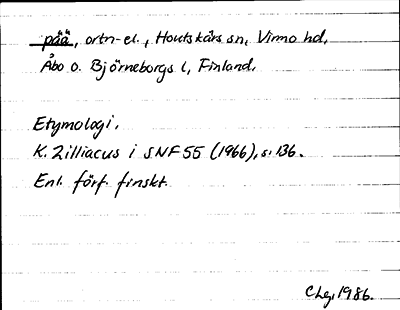 pää, ortn-el., Houtskärs sn, Virmo hd,
Åbo o. Björneborgs l, Finland.
Etymologi.
K. Zilliacus i SNF 55 (1966), s. 136.
Enl. förf. finskt.
CLg, 1986.